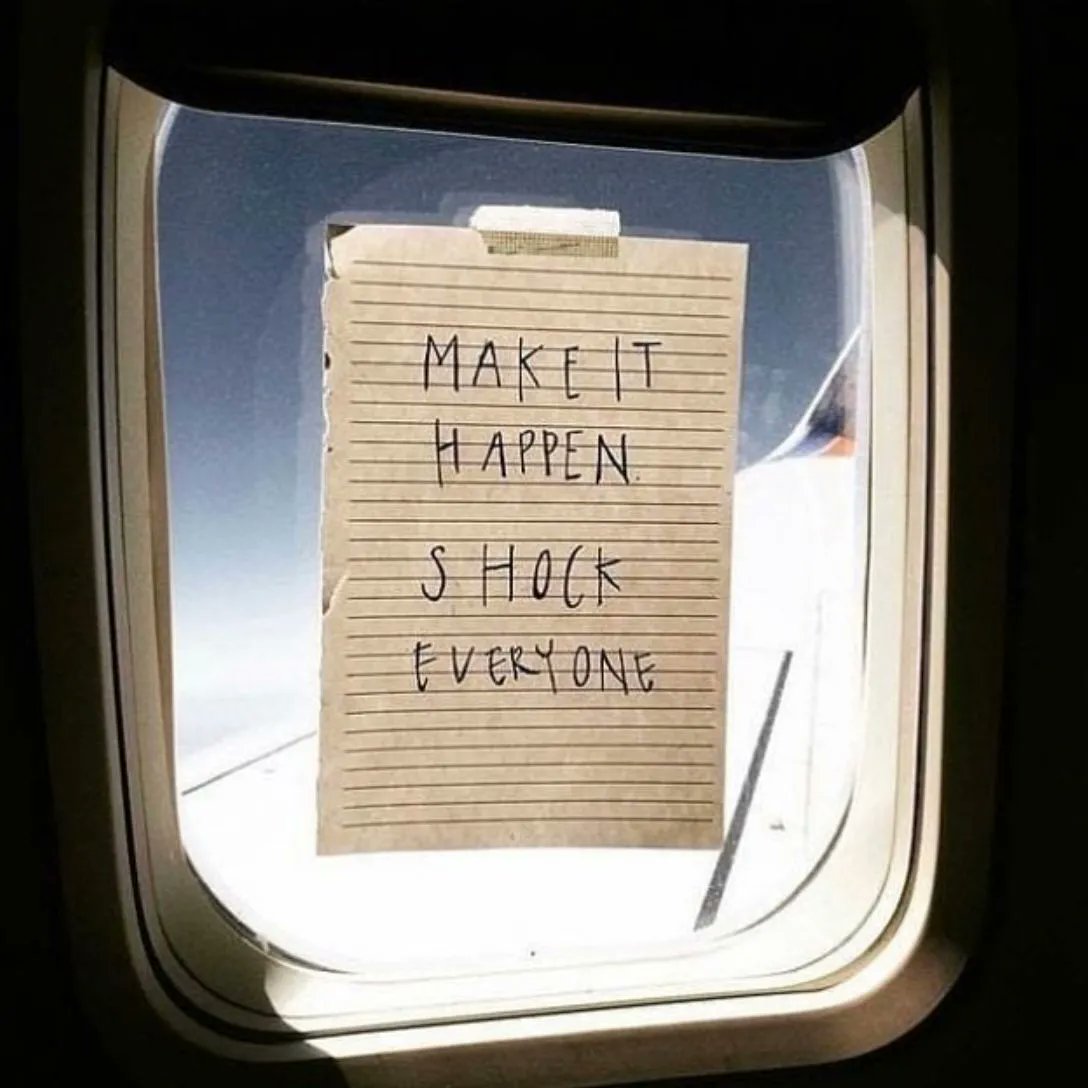 MAKE IT
HAPPEN.
SHOCK
EVERYONE